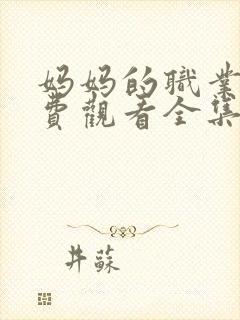 妈妈的職業
費觀看全集
井蘇